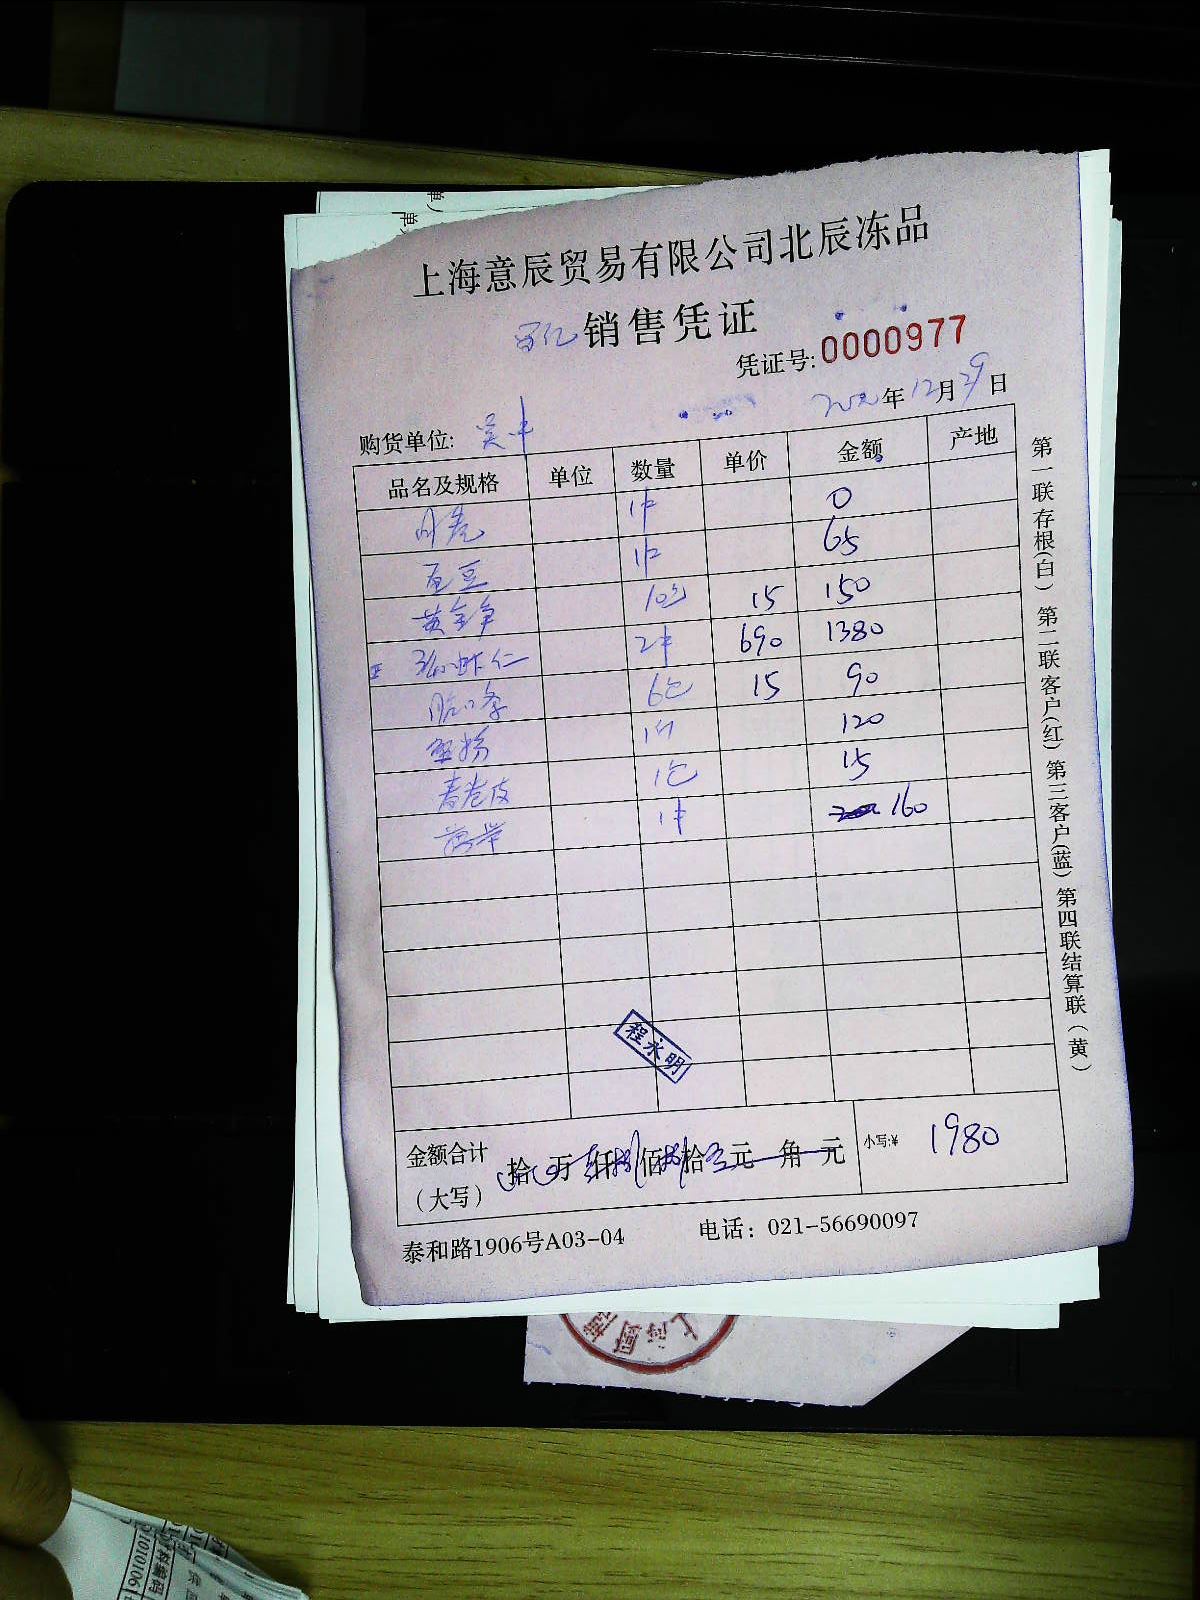 上海意辰贸易有限公司北辰冻品
销售凭证
凭证号:0000977
年12月29日
购货单位:
品名及规格 单位 数量 单价 金额 产地
1件 0
豆 1件 65
黄金 10包 15 150
虾仁 2件 690 1380
条 6包 15 90
粉 1件 120
春卷皮 1包 15
1件 160
程永明
金额合计
(大写)
拾 万 仟 佰 拾 元 角 元
小写:¥ 1980
泰和路1906号A03-04 电话: 021-56690097
第一联存根(白) 第二联客户(红) 第三客户(蓝) 第四联结算联(黄)
上海厨